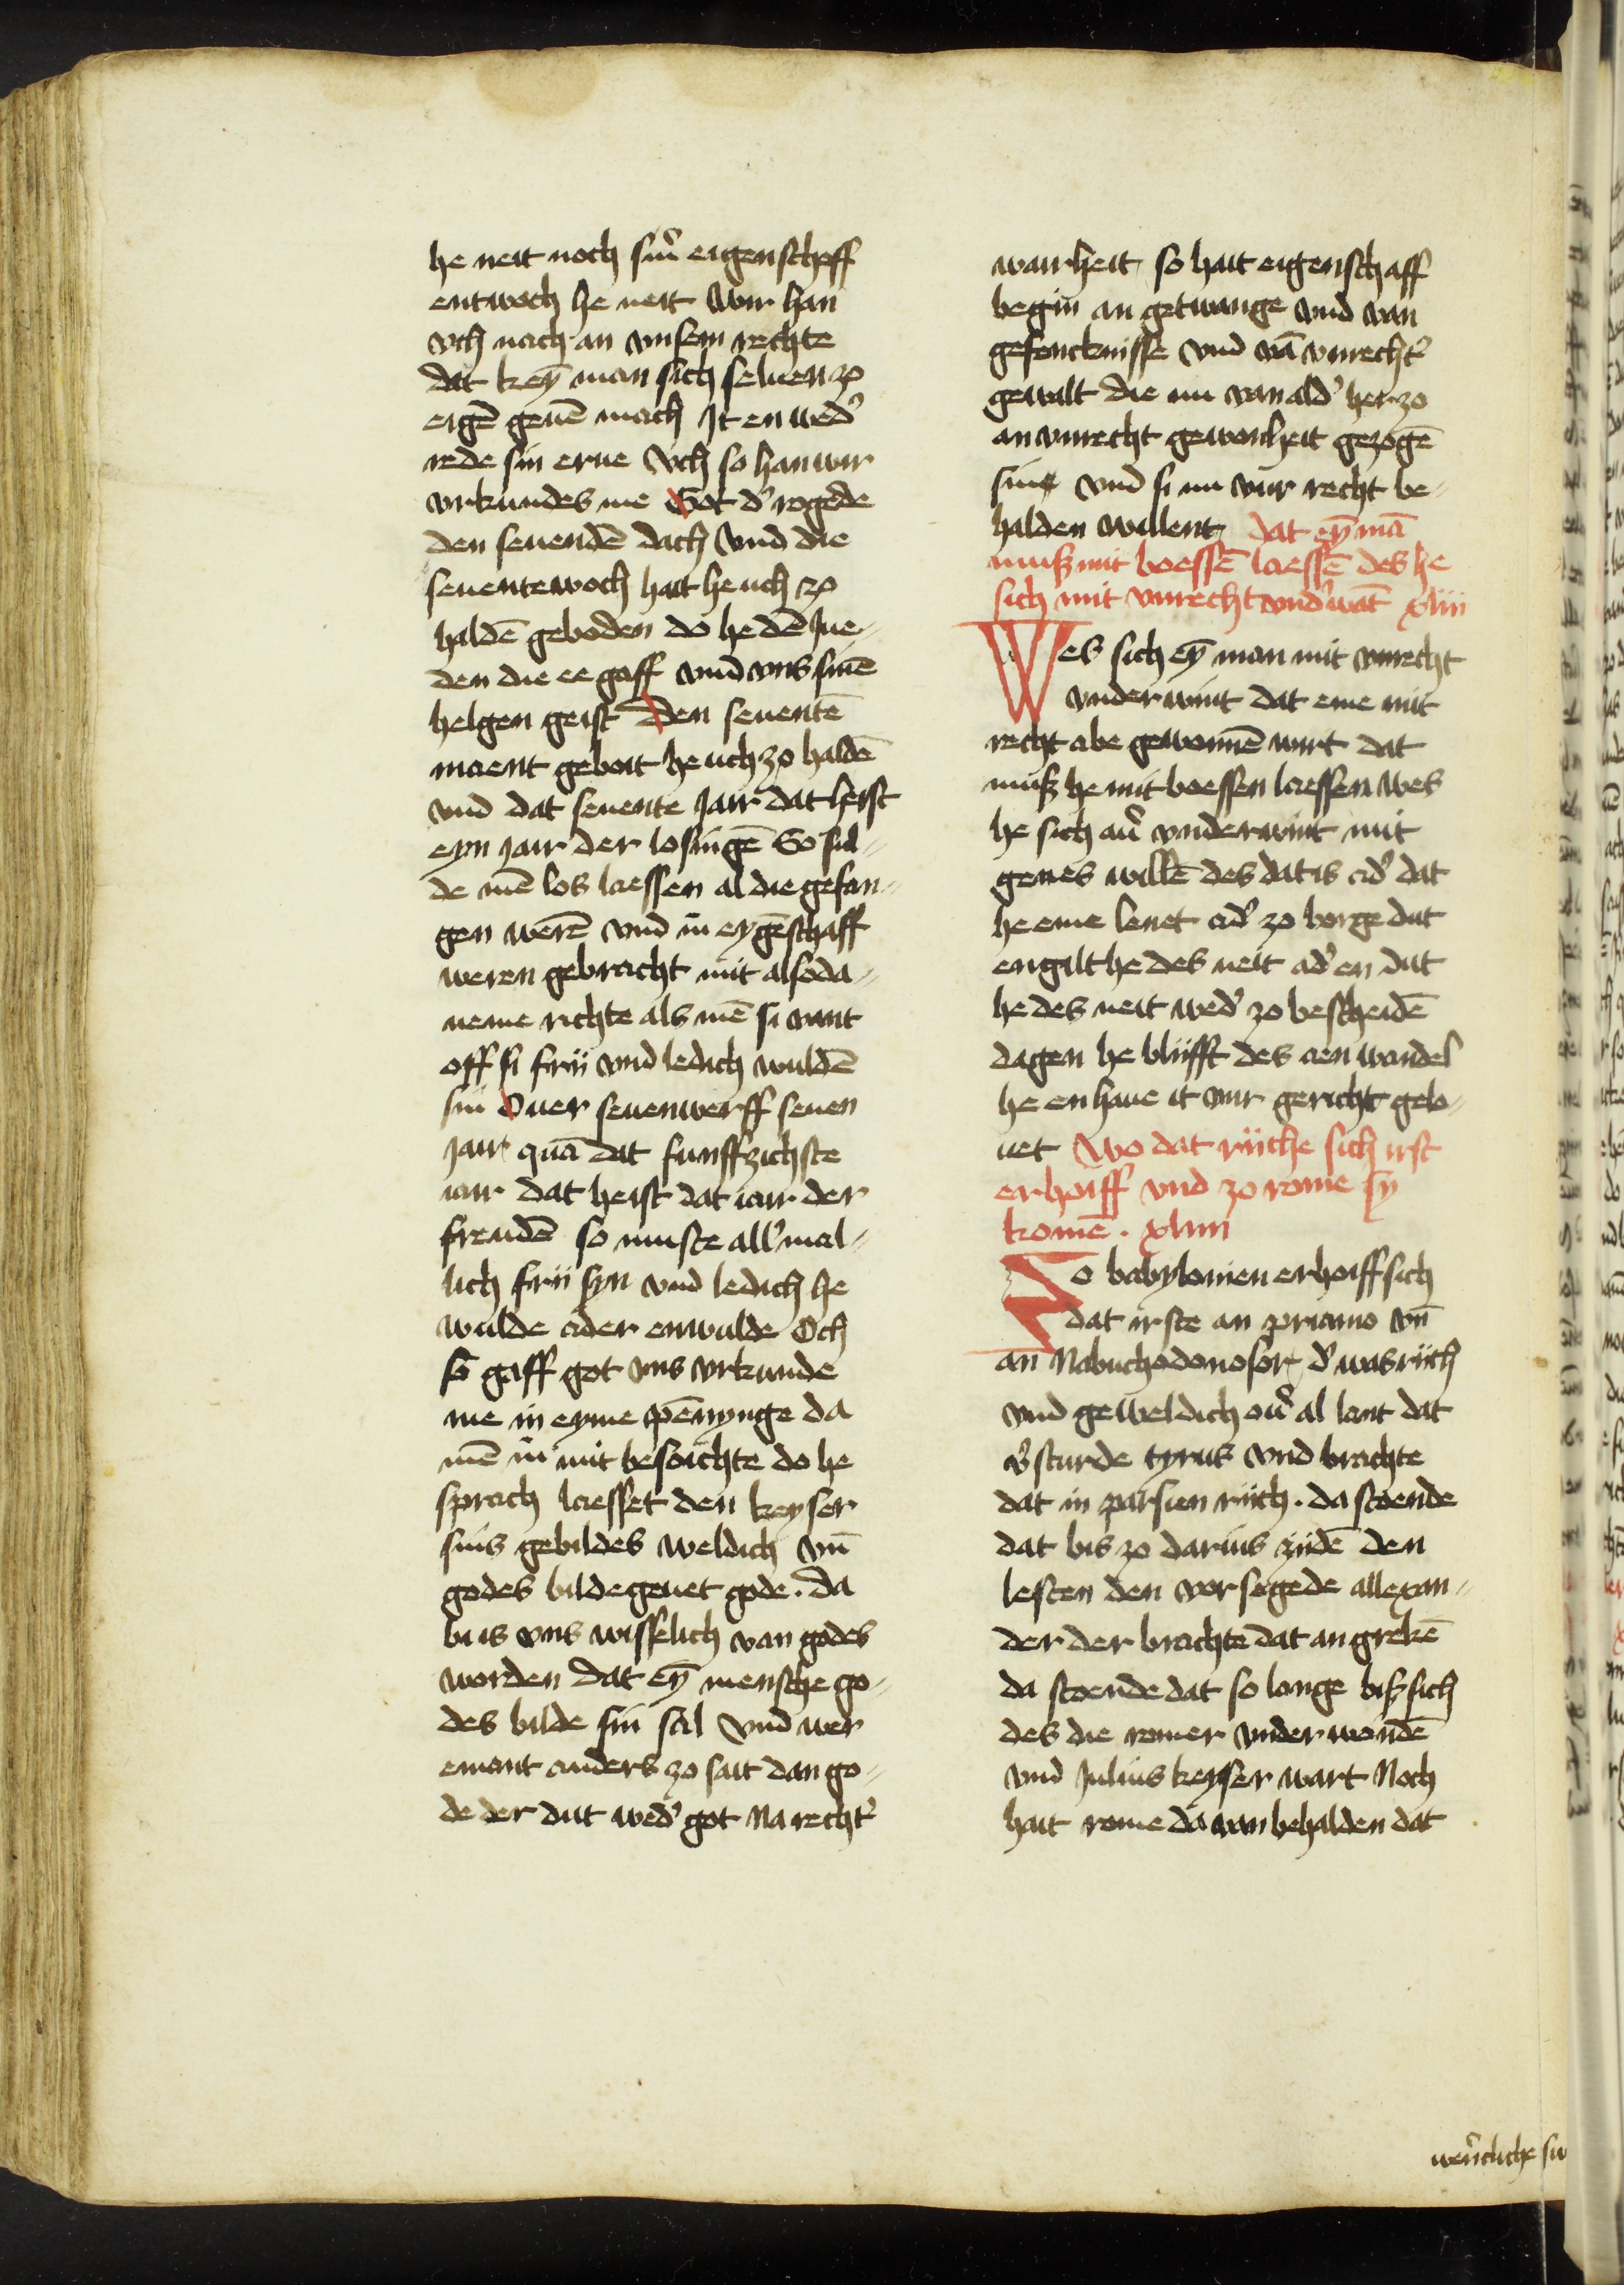 he neit noch sinr̉ eigenschaff
entwoch he neit wir han
vch nach an vnsem rechte
dat keyn̄ man sich seluen zo
eigē geuē mach It en wed̓
rede sin erue Vch so han wir
vrkundes me Got d̓ rogede
den seuendē dach Vnd die
seuentewoch hait he uch zo
haldē geboden do he dē Jue-
den die ee gaff vnd vns sinē
helgen geist Den seuentē
maent geboit he uch zo haldē
vnd dat seuente Jair dat heist
eyn iair der losingē So sul-
de mē los laessen al die gefan-
gen werē vnd in eygēschaff
weren gebracht mit alsoda-
neme richte als mē si vant
off si frii vnd ledich wuldē
sin Ouer seuenwerff seuen
Jair quā dat funffzichste
iair dat heist dat iair der
freudē so muste all̓ mal-
lich frii syn vnd ledich he
wulde ader enwulde Och
so gaff got vns vrkunde
me in eyme pēnynge da
mē in mit besoichte do he
sprach laesset den keyser
sins gebildes weldich vn̄
godes bilde geuet gode. da
bi is vns wisselich van godes
worden dat eyn̄ mensche go-
des bilde sin sal Vnd wer
emant anders zo sait dan go-
de der dut wed̓ got Na recht̓
wairheit so hait eigenschaff
begin an getwange vnd van
gefencknisse vnd vā vnrecht̓
gewalt die nu van ald̓ herzo
an vnrecht gewonheit gezogē
sint vnd si nu vur recht be-
halden willent dat eyn̄ mā
muß mit boessē laessē des he
sich mit vnrecht vnd̓wāt xliii
Wes sich eyn̄ man mit vnrecht
vnderwint dat eme mit
recht abe gewonnē wirt dat
muß he mit boessen laessen wes
he sich au̓ vnderwint mit
genes willē des dat is ad̓ dat
he eme lenet ad̓ zo borge dut
engilt he des neit ad̓ en dut
he des neit wed̓ zo bescheidē
dagen he bliifft des aen wandel
he en haue it vur gericht gelo-
uet Wo dat riiche sich irst
erhoiff vnd zo rome sy
komē. xliiii
Zo babylonien erhoiff sich
dat irste an priamo vn̄
an Nabuchodonosor d̓ was riich
vnd geweldich ou̓ al lant dat
v̓sturde tyrus vnd brachte
dat in parsien riich. da stoende
dat bis zo darius ziidē den
lesten den vorsegede allexan-
der der brachte dat an grekē
da stoende dat so lange biß sich
des die romer vnderwondē
vnd Julius keyser wart Noch
hait rome da van behalden dat